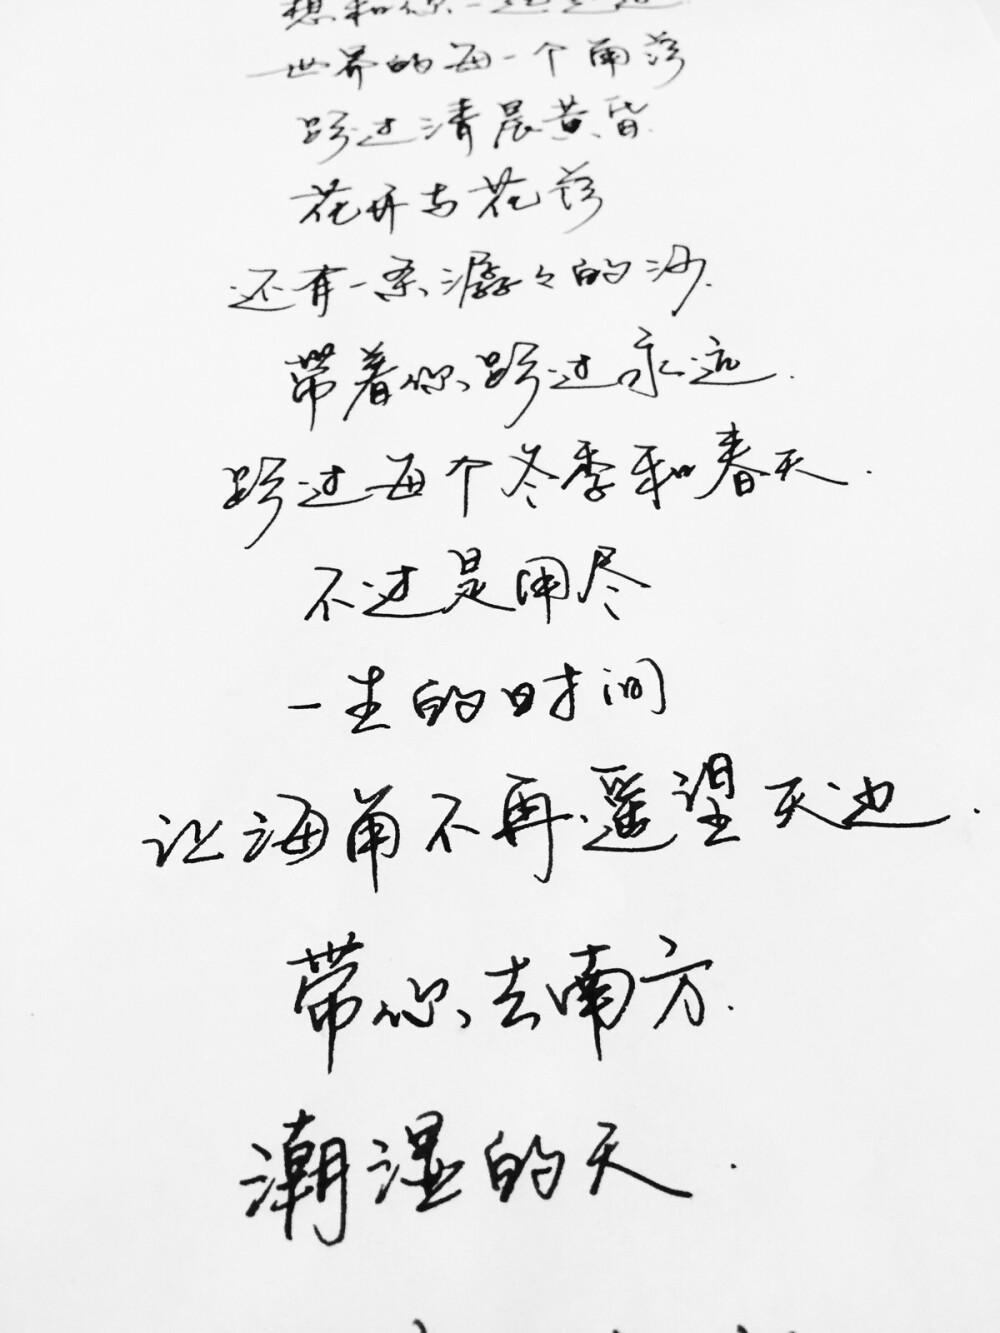 想和你一起
世界的每一个角落
跨过清晨黄昏.
花开与花落
还有一条潺々的
带着你跨过永远.
跨过每个冬季和春天.
不过是用尽
一生的时间
让海角不再遥望天边.
带你去南方.
潮湿的天.